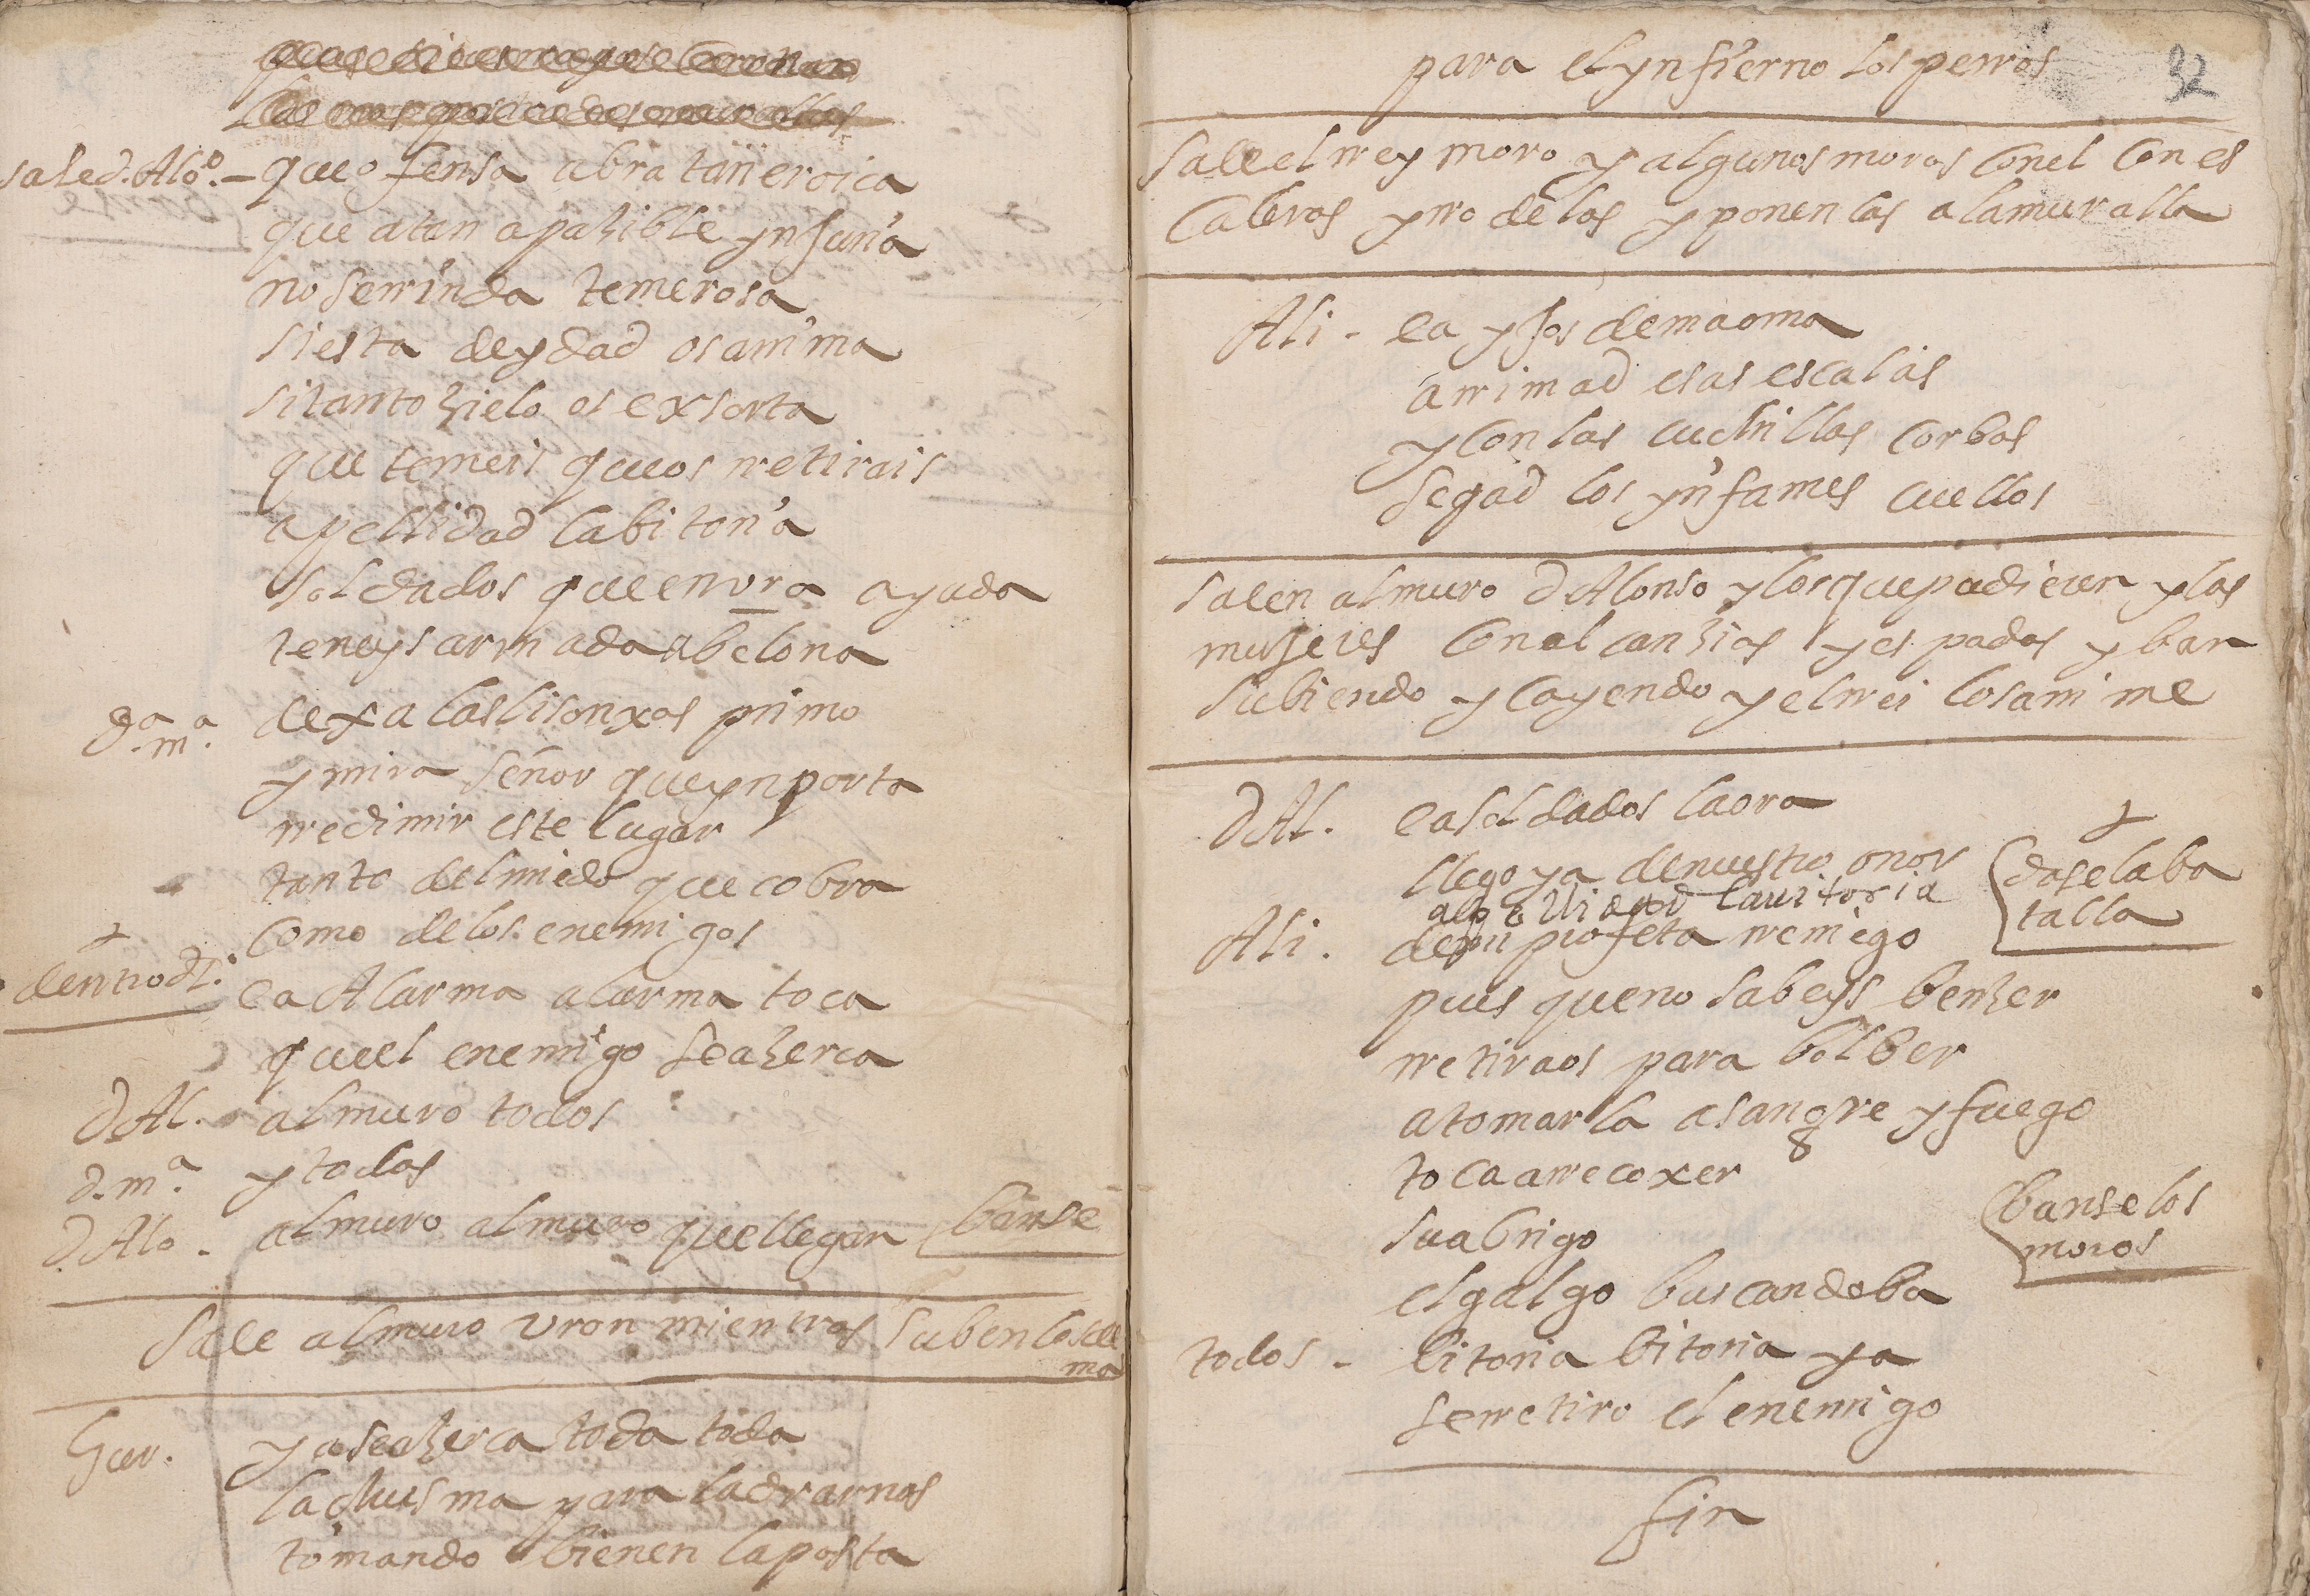 sale d. Alº. - que ofensa abra tan eroica
que a tan apazible ynfuria
no serrinda temerosa
si esta deydad os anima
si tanto zielo os exsorta
que temeis que os rretirais
apellidad la bitoria
soldados que en vra ayuda
teneys armada a belona
dª. mª. dexa las lisonxas primo
y mira señor que ynporta
rredimir este lugar
tanto del miedo que cobra
como de los enemigos
+
dentro ea Al arma al arma toca
quel enemigo se azerca
d Al. al muro todos
d. mª. y todas
d. Alo - al muro al muro que llegan (banse
Sale al muro vron mientras suben los de
mas
Gar. ya se azerca toda toda
la chusma para ladrarnos
tomando bienen la posta
32
para el ynfierno los perros
Sale el rrey moro y algunos moros con el con es
caleras y rrodelas y ponen las a la muralla
Ali - ea yjos de maoma
arrimad esas escalas
y con las cuchillas corbas
segad los ynfames cuellos
salen al muro d Alonso y los que pudieren y las
mujeres con alcanzias y espadas y ban
subiendo y cayendo y el rrei los anime
d Al. ea soldados la ora
llego ya de nuestro onor
+
(dase la ba
talla
apellidad la uitoria
Ali. de mi profeta rreniego
pues que no sabeys benzer
rretiraos para bolber
a tomarla a sangre y fuego
toca a rrecoxer
(banse los
moros
su abrigo
el galgo buscando ba
todos - bitoria bitoria ya
se rretiro el enemigo
fin